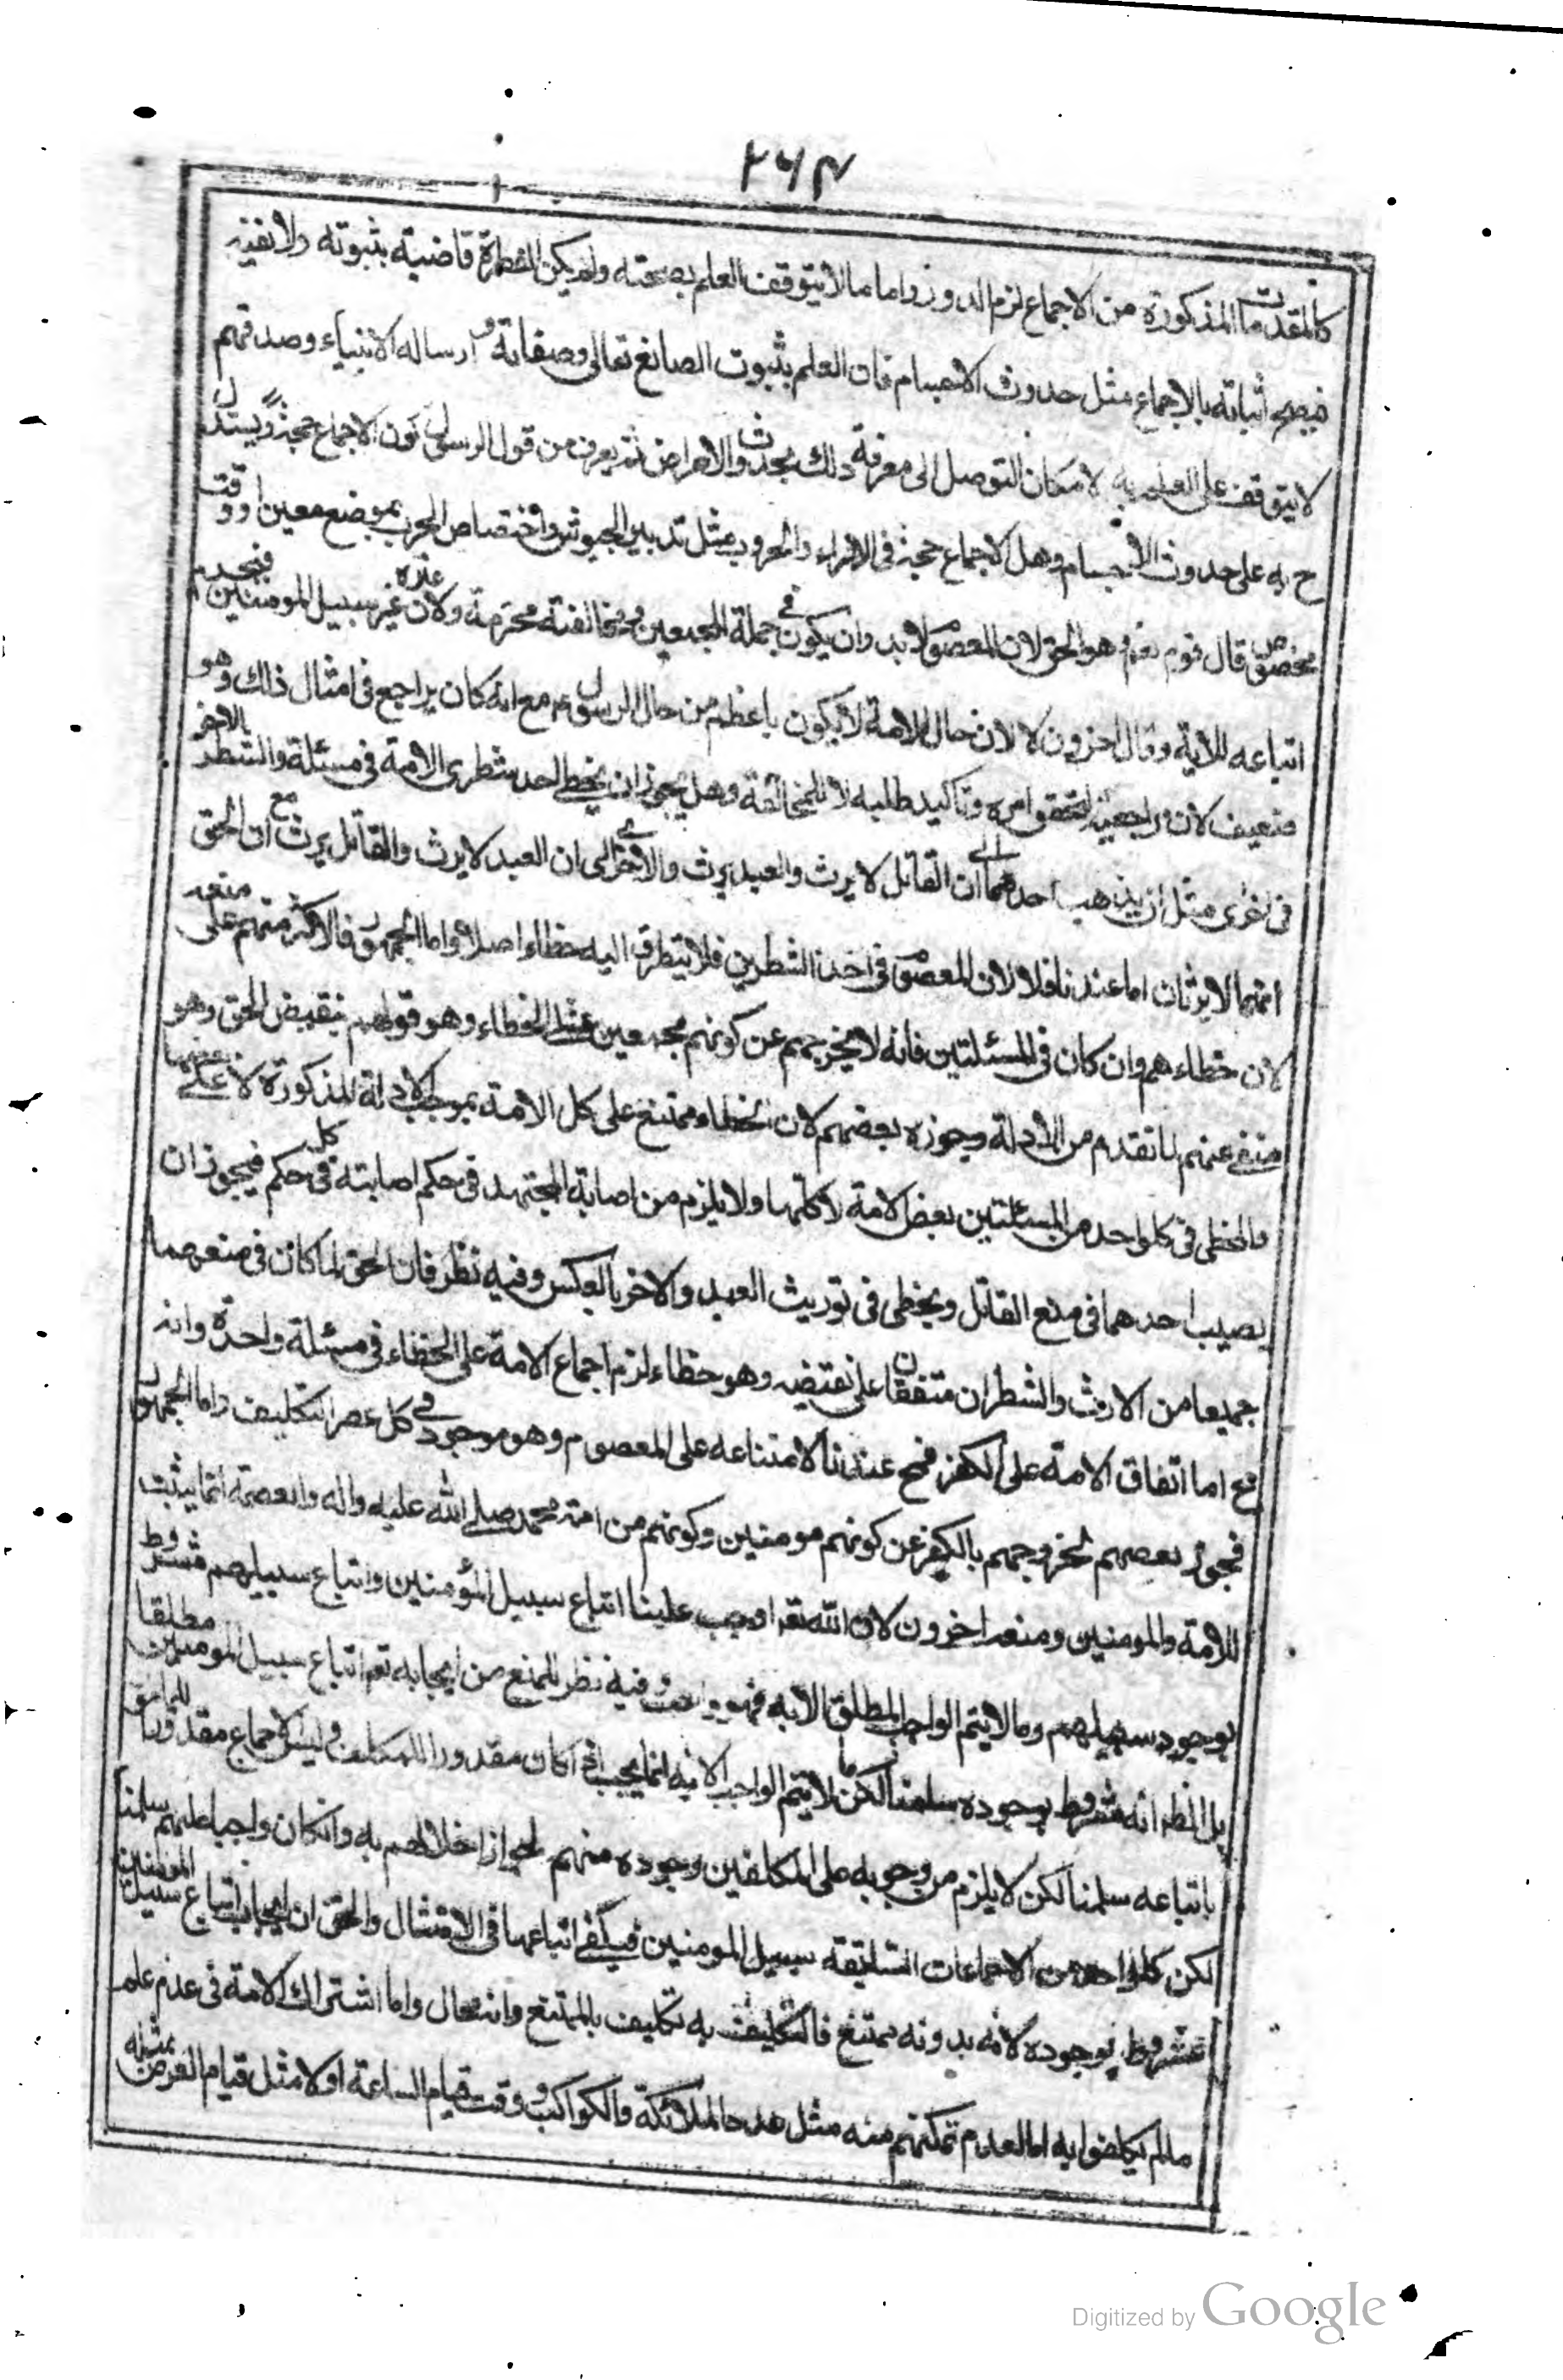 ۲۶۴
كالمقدمات المذكورة من الاجماع لزم الدور واما ما لا يتوقف العلم بصحته ولم يكن الضرورة قاضية بثبوته ولا نفيه
فيصح اثباته بالاجماع مثل حدوث الاجسام فان العلم بثبوت الصانع تعالى وصفاته و ارساله الانبياء وصدقهم
لا يتوقف على العلم به لامكان التوصل الى معرفة ذلك بحدوث الاعراض ثم يعرف من قول الرسول كون الاجماع حجة ويستدل
ح به على حدوث الاجسام وهل الاجماع حجة في الاراء والحروب مثل تدبير الجيوش واختصاص الحرب بموضع معين او وقت
مخصوص قال قوم نعم وهو الحق لان المعصوم لابد وان يكون في جملة المجمعين ومخالفته محرمة ولان غيره غير سبيل المومنين فيحرم
اتباعه للاية وقال اخرون لا لان حال الامة لا يكون باعظم من حال الرسول ع مع انه كان يراجع في امثال ذلك وهو
ضعيف لان مراجعته لتحقق امره وتاكيد طلبه لا للمخالفة وهل يجوز ان يخطي احد شطري الامة في مسئلة والشطر الاخر
في اخرى مثل ان يذهب احدهما الى ان القاتل لا يرث والعبد يرث والاخر الى ان العبد لا يرث والقاتل يرث مع ان الحق
انهما لا يرثان اما عندنا فلا لان المعصوم في احد الشطرين فلا يتطرق اليه خطاء اصلا واما الجمهور فالاكثر منهم على منعه
لان خطاءهم وان كان في المسئلتين فانه لا يخرجهم عن كونهم مجمعين على الخطاء وهو قولهم بنقيض الحق وهو
منفى عنهم لما تقدم من الادلة وجوزه بعضهم لان الخطاء ممتنع على كل الامة بموجب الادلة المذكورة لا على بعضها
والمخطى في كل واحد من المسئلتين بعض الامة لا كلها ولا يلزم من اصابة المجتهد في حكم اصابته في كل حكم فيجوز ان
يصيب احدهما في منع القاتل ويخطى في توريث العبد والاخر بالعكس وفيه نظر فان الحق لما كان في منعهما
جميعا من الارث والشطران متفقان على نقيضه وهو خطاء لزم اجماع الامة على الخطاء في مسئلة واحدة وانه
مح اما اتفاق الامة على الكفر فمح عندنا لامتناعه على المعصوم وهو موجود في كل عصر التكليف واما الجمهور
فجوز بعضهم لخروجهم بالكفر عن كونهم مومنين وكونهم من امة محمد صلى الله عليه واله والعصمة انما يثبت
للامة والمومنين ومنعه اخرون لان الله تعا اوجب علينا اتباع سبيل المؤمنين واتباع سبيلهم مشروط
بوجود سبيلهم وما لا يتم الواجب المطلق الا به فهو واجب وفيه نظر للمنع من ايجابه تعا اتباع سبيل المومنين مطلقا
بل الظ انه مشروط بوجوده سلمنا لكن ما لا يتم الواجب الا به انما يجب اذا كان مقدورا للمكلف وليس الاجماع مقدورا للمامور
باتباعه سلمنا لكن لا يلزم من وجوبه على المكلفين وجوده منهم لجواز اخلالهم به وان كان واجبا عليهم سلمنا
لكن كل واحد من الاجماعات السابقة سبيل المومنين فيكفى اتباعها في الامتثال والحق ان ايجاب اتباع سبيل المومنين
مشروط بوجوده لانه بدونه ممتنع فالتكليف به تكليف بالممتنع وانه محال واما اشتراك الامة في عدم علم
ما لم يكلفوا به اما لعدم تمكنهم منه مثل عدد الملائكة والكواكب ووقت قيام الساعة او لا مثل قيام الفرض بمثله